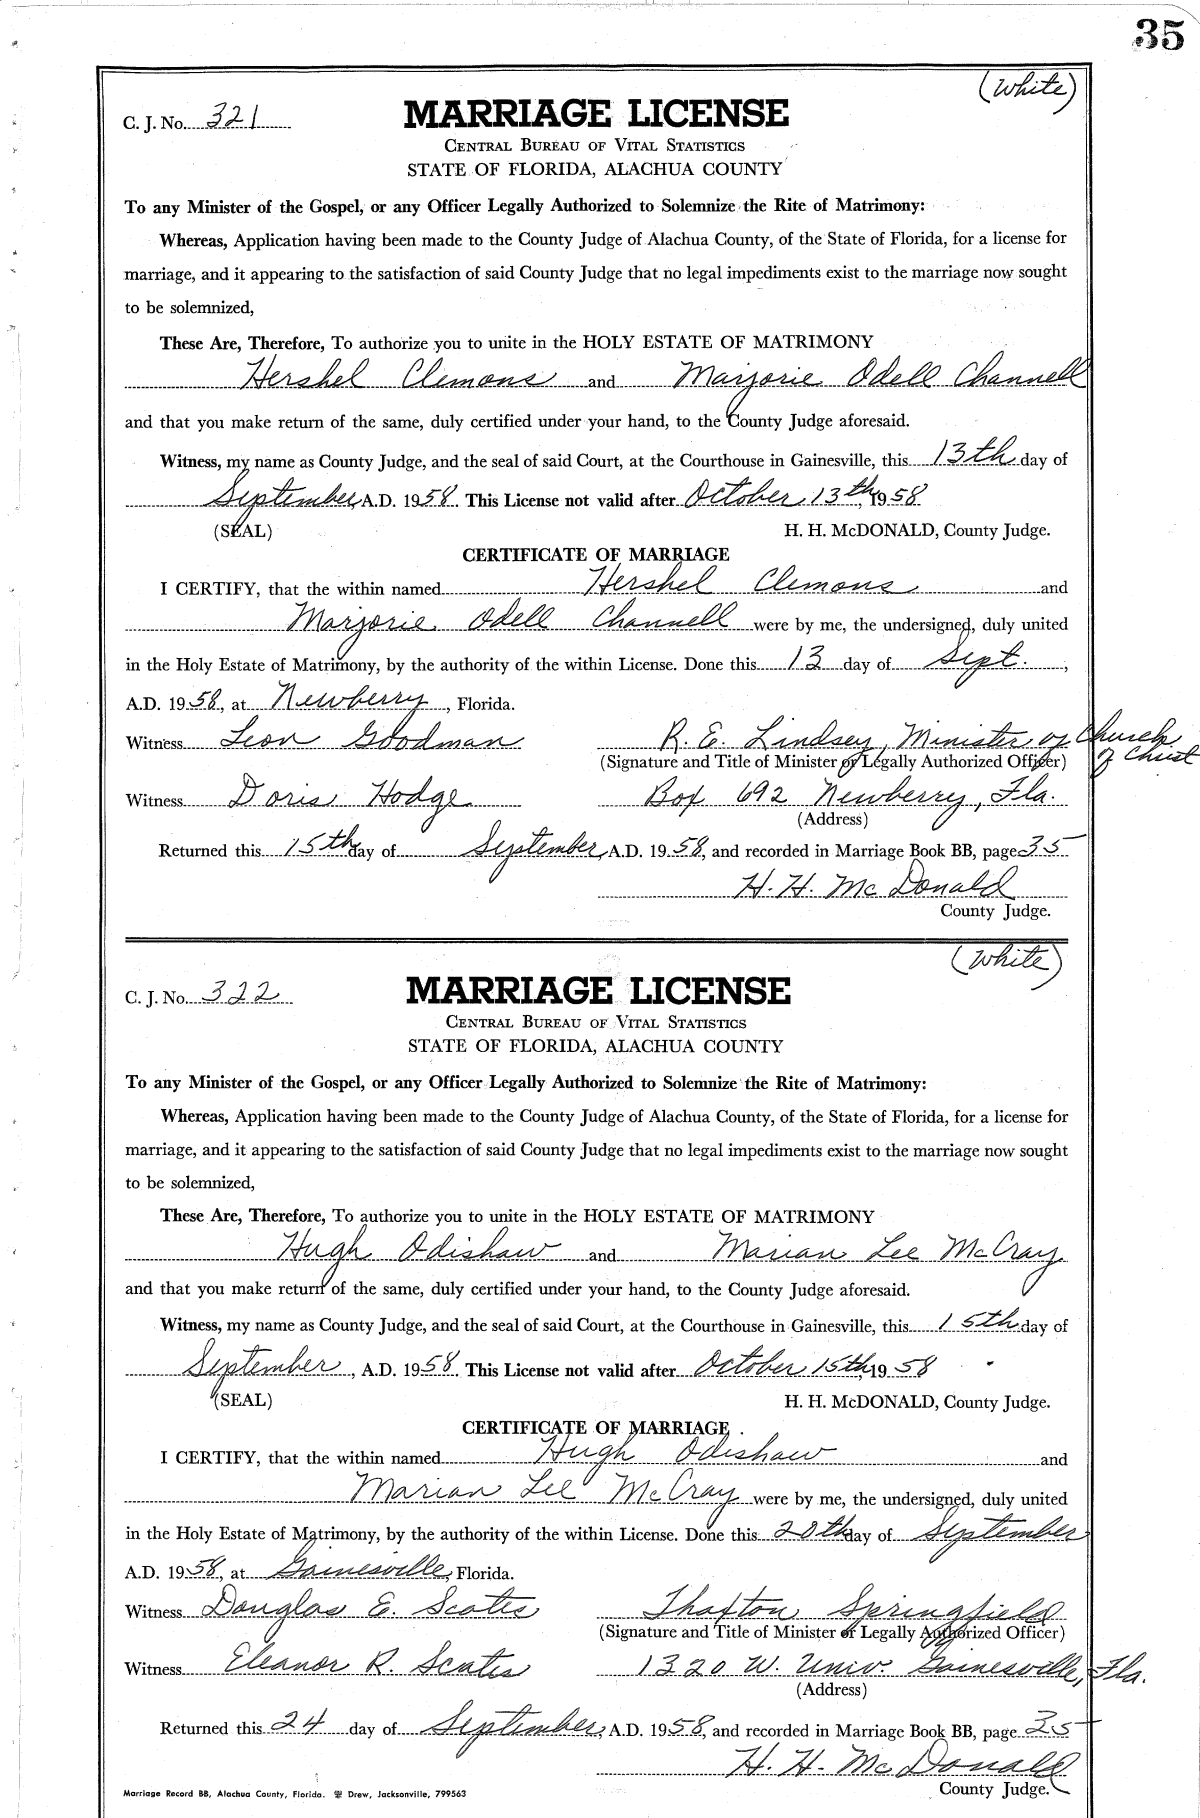 35
(White)
C. J. No. 321
MARRIAGE LICENSE
CENTRAL BUREAU OF VITAL STATISTICS
STATE OF FLORIDA, ALACHUA COUNTY
To any Minister of the Gospel, or any Officer Legally Authorized to Solemnize the Rite of Matrimony:
Whereas, Application having been made to the County Judge of Alachua County, of the State of Florida, for a license for
marriage, and it appearing to the satisfaction of said County Judge that no legal impediments exist to the marriage now sought
to be solemnized,
These Are, Therefore, To authorize you to unite in the HOLY ESTATE OF MATRIMONY
Hershel Clemons and Marjorie Odell Channell
and that you make return of the same, duly certified under your hand, to the County Judge aforesaid.
Witness, my name as County Judge, and the seal of said Court, at the Courthouse in Gainesville, this 13th day of
September, A.D. 1958. This License not valid after October 13th, 1958
(SEAL) H. H. McDONALD, County Judge.
CERTIFICATE OF MARRIAGE
I CERTIFY, that the within named Hershel Clemons and
Marjorie Odell Channell were by me, the undersigned, duly united
in the Holy Estate of Matrimony, by the authority of the within License. Done this 13 day of Sept.,
A.D. 1958, at Newberry, Florida.
Witness Leon Goodman R. E. Lindsey, Minister of Church of Christ
(Signature and Title of Minister or Legally Authorized Officer)
Witness Doris Hodge Box 692 Newberry, Fla.
(Address)
Returned this 15th day of September, A.D. 1958, and recorded in Marriage Book BB, page 35
H. H. McDonald
County Judge.
(White)
C. J. No. 322
MARRIAGE LICENSE
CENTRAL BUREAU OF VITAL STATISTICS
STATE OF FLORIDA, ALACHUA COUNTY
To any Minister of the Gospel, or any Officer Legally Authorized to Solemnize the Rite of Matrimony:
Whereas, Application having been made to the County Judge of Alachua County, of the State of Florida, for a license for
marriage, and it appearing to the satisfaction of said County Judge that no legal impediments exist to the marriage now sought
to be solemnized,
These Are, Therefore, To authorize you to unite in the HOLY ESTATE OF MATRIMONY
Hugh Odishaw and Marian Lee McCray
and that you make return of the same, duly certified under your hand, to the County Judge aforesaid.
Witness, my name as County Judge, and the seal of said Court, at the Courthouse in Gainesville, this 15th day of
September, A.D. 1958. This License not valid after October 15th, 1958
(SEAL) H. H. McDONALD, County Judge.
CERTIFICATE OF MARRIAGE
I CERTIFY, that the within named Hugh Odishaw and
Marian Lee McCray were by me, the undersigned, duly united
in the Holy Estate of Matrimony, by the authority of the within License. Done this 20th day of September
A.D. 1958, at Gainesville, Florida.
Witness Douglas E. Scates Thaxton Springfield
(Signature and Title of Minister or Legally Authorized Officer)
Witness Eleanor R. Scates 1320 W. Univ. Gainesville, Fla.
(Address)
Returned this 24 day of September, A.D. 1958, and recorded in Marriage Book BB, page 35
H. H. McDonald
County Judge.
Marriage Record BB, Alachua County, Florida. Drew, Jacksonville, 799563